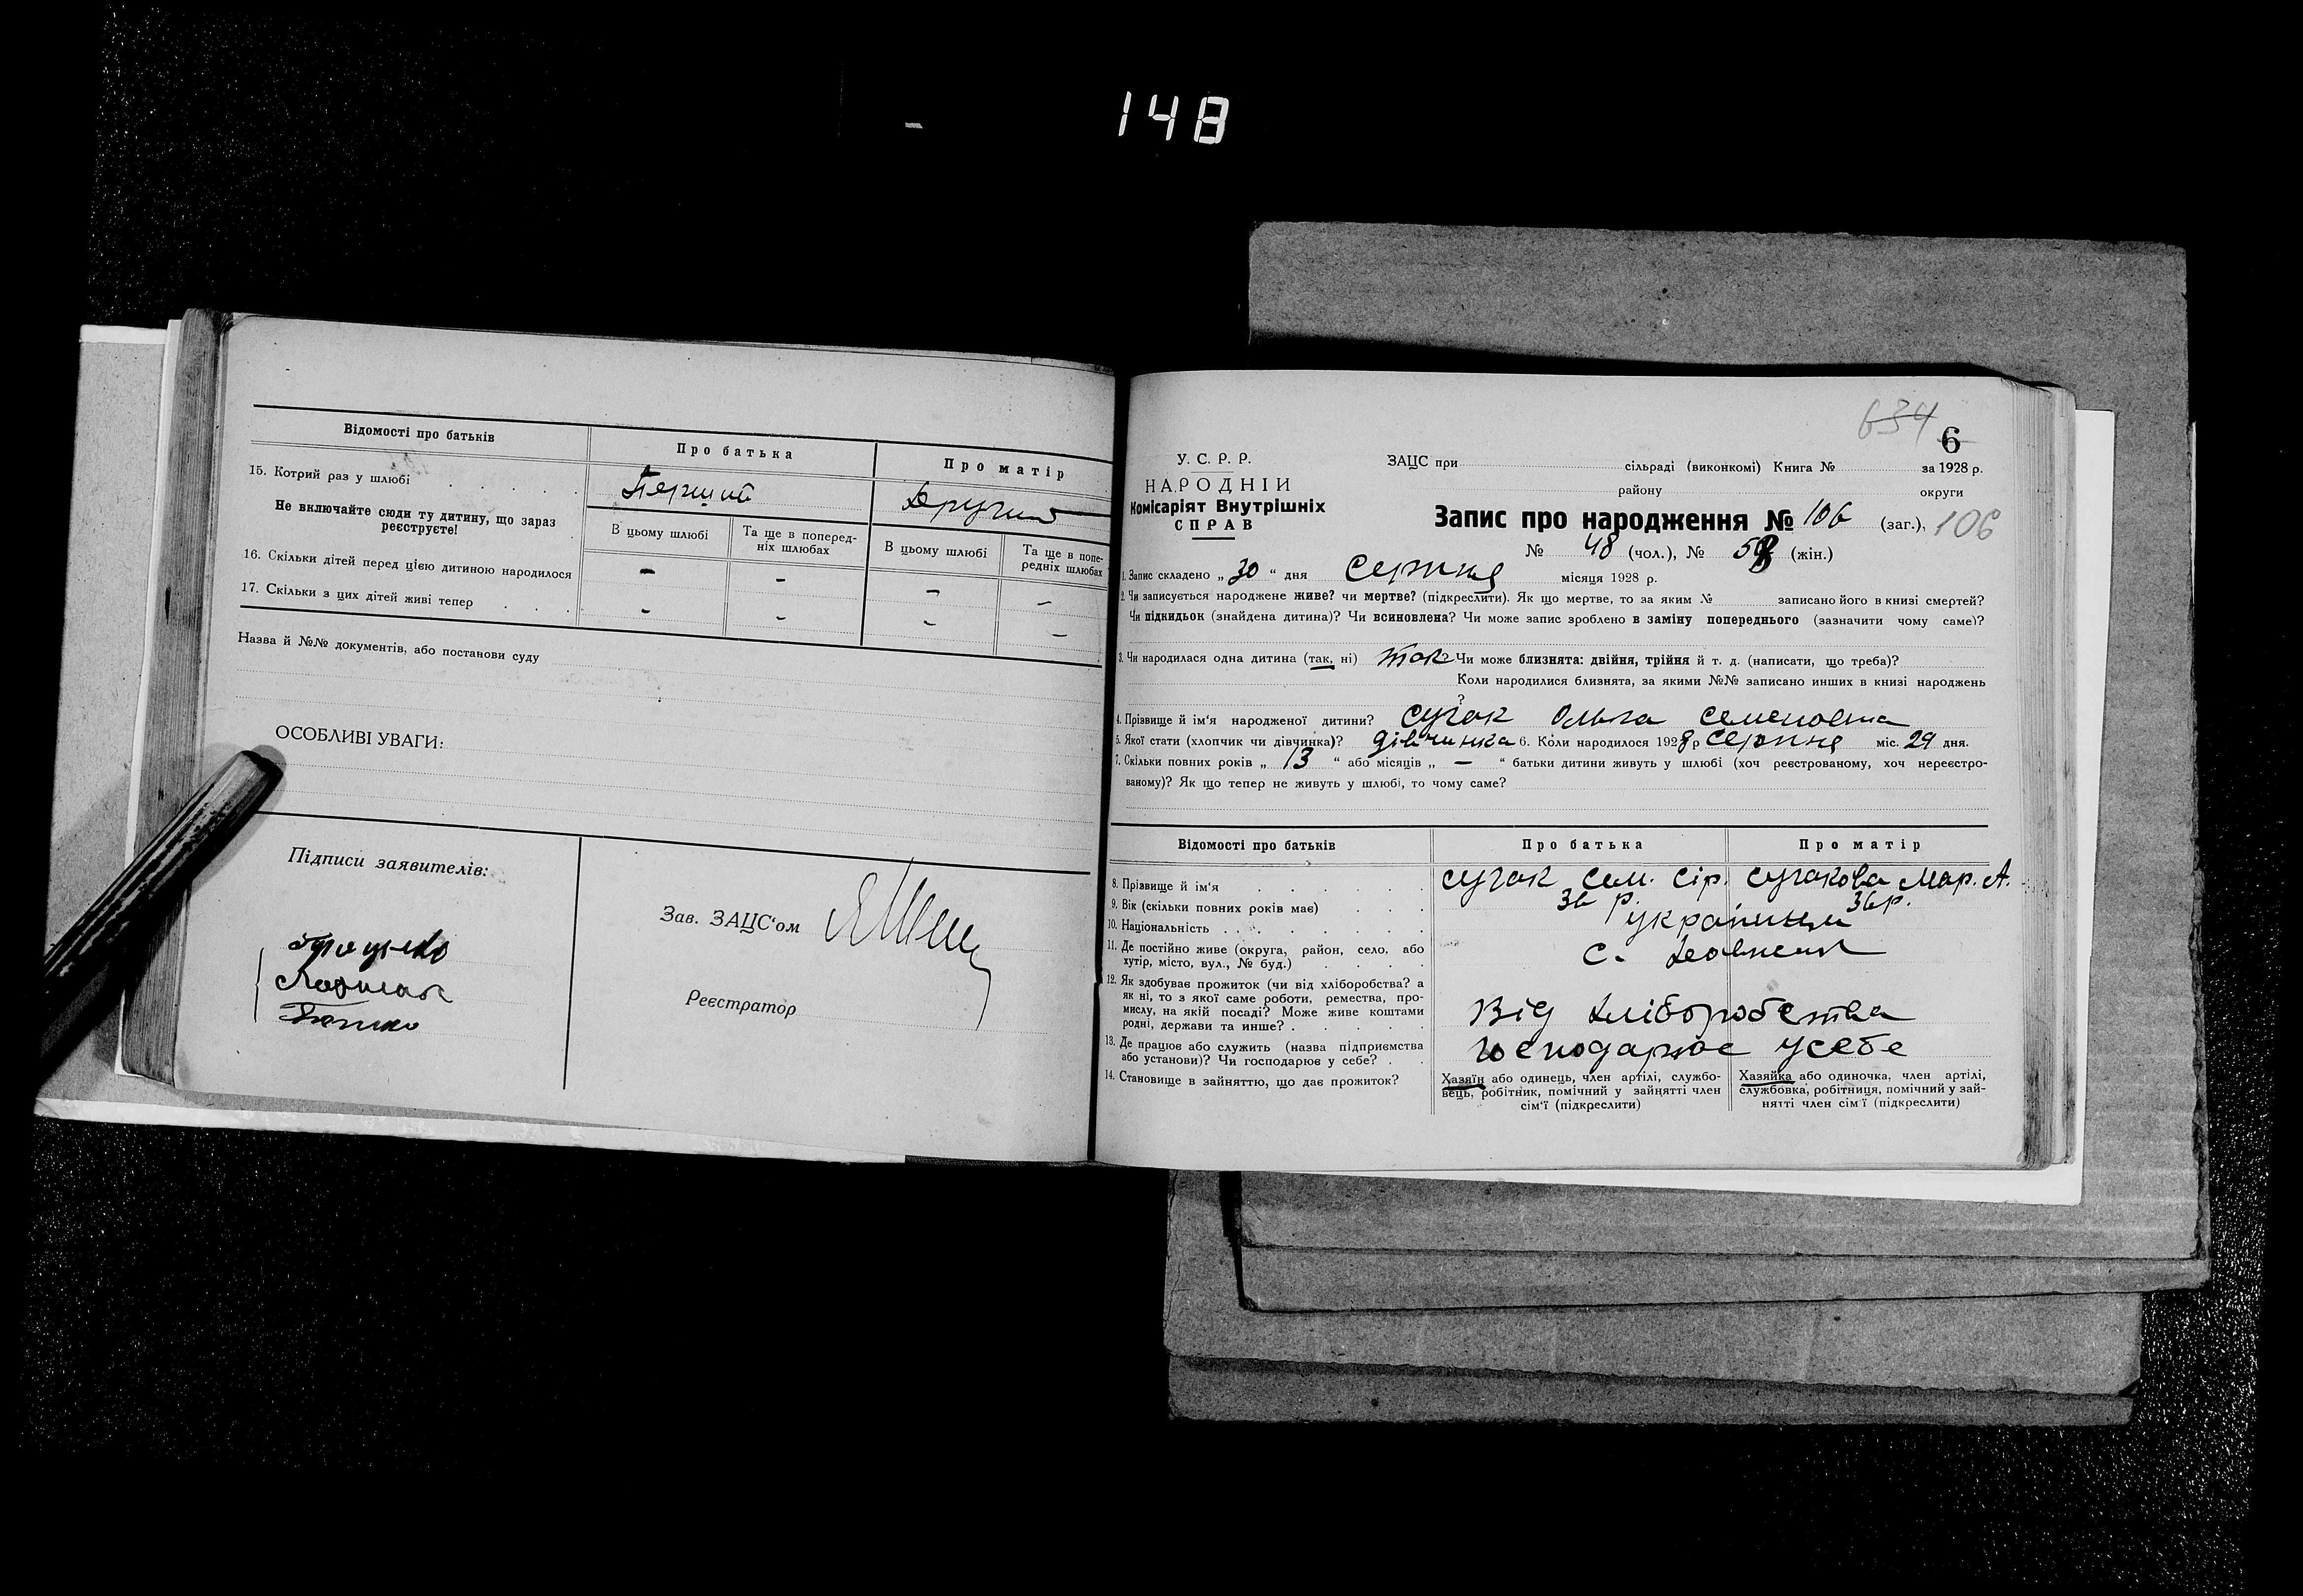 148
Відомості про батьків
Про батька
Про матір
15. Котрий раз у шлюбі
Перший
Другий
Не включайте сюди ту дитину, що зараз
реєструєте!
В цьому шлюбі
Та ще в поперед-
ніх шлюбах
В цьому шлюбі
Та ще в попе-
редніх шлюбах
16. Скільки дітей перед цією дитиною народилося - - - -
17. Скільки з цих дітей живі тепер - - - -
Назва й №№ документів, або постанови суду
ОСОБЛИВІ УВАГИ:
Підписи заявителів:
Зав. ЗАЦС'ом
Реєстратор
634 6
У. С. Р. Р.
НАРОДНІЙ
Комісаріят Внутрішніх
СПРАВ
ЗАЦС при сільраді (виконкомі) Книга № за 1928 р.
району округи
Запис про народження № 106 (заг.), 106
№ 48 (чол.), № 58 (жін.)
1. Запис складено „ 30 “ дня Серпня місяця 1928 р.
2. Чи записується народжене живе? чи мертве? (підкреслити). Як що мертве, то за яким № записано його в книзі смертей?
Чи підкидьок (знайдена дитина)? Чи всиновлена? Чи може запис зроблено в заміну попереднього (зазначити чому саме)?
3. Чи народилася одна дитина (так, ні) так Чи може близнята: двійня, трійня й т. д. (написати, що треба)?
Коли народилися близнята, за якими №№ записано инших в книзі народжень
?
4. Прізвище й ім'я народженої дитини? Сугак Ольга Семеновна
5. Якої стати (хлопчик чи дівчинка)? дівчинка 6. Коли народилося 1928 р Серпня міс. 29 дня.
7. Скільки повних років „ 13 “ або місяців „ — “ батьки дитини живуть у шлюбі (хоч реєстрованому, хоч нереєстро-
ваному)? Як що тепер не живуть у шлюбі, то чому саме?
Відомості про батьків
Про батька
Про матір
8. Прізвище й ім'я
Сугак Сем. Сір.
Сугакова Мар. А.
9. Вік (скільки повних років має)
36 р.
36 р.
10. Національність
українці
11. Де постійно живе (округа, район, село, або
хутір, місто, вул., № буд.)
с.
12. Як здобуває прожиток (чи від хліборобства? а
як ні, то з якої саме роботи, ремества, про-
мислу, на якій посаді? Може живе коштами
родні, держави та инше?
Від хліборобства
13. Де працює або служить (назва підприємства
або установи)? Чи господарює у себе?
Господарює усебе
14. Становище в зайняттю, що дає прожиток?
Хазяїн або одинець, член артілі, службо-
вець, робітник, помічний у зайнятті член
сім'ї (підкреслити)
Хазяйка або одиночка, член артілі,
службовка, робітниця, помічний у зай-
нятті член сім'ї (підкреслити)